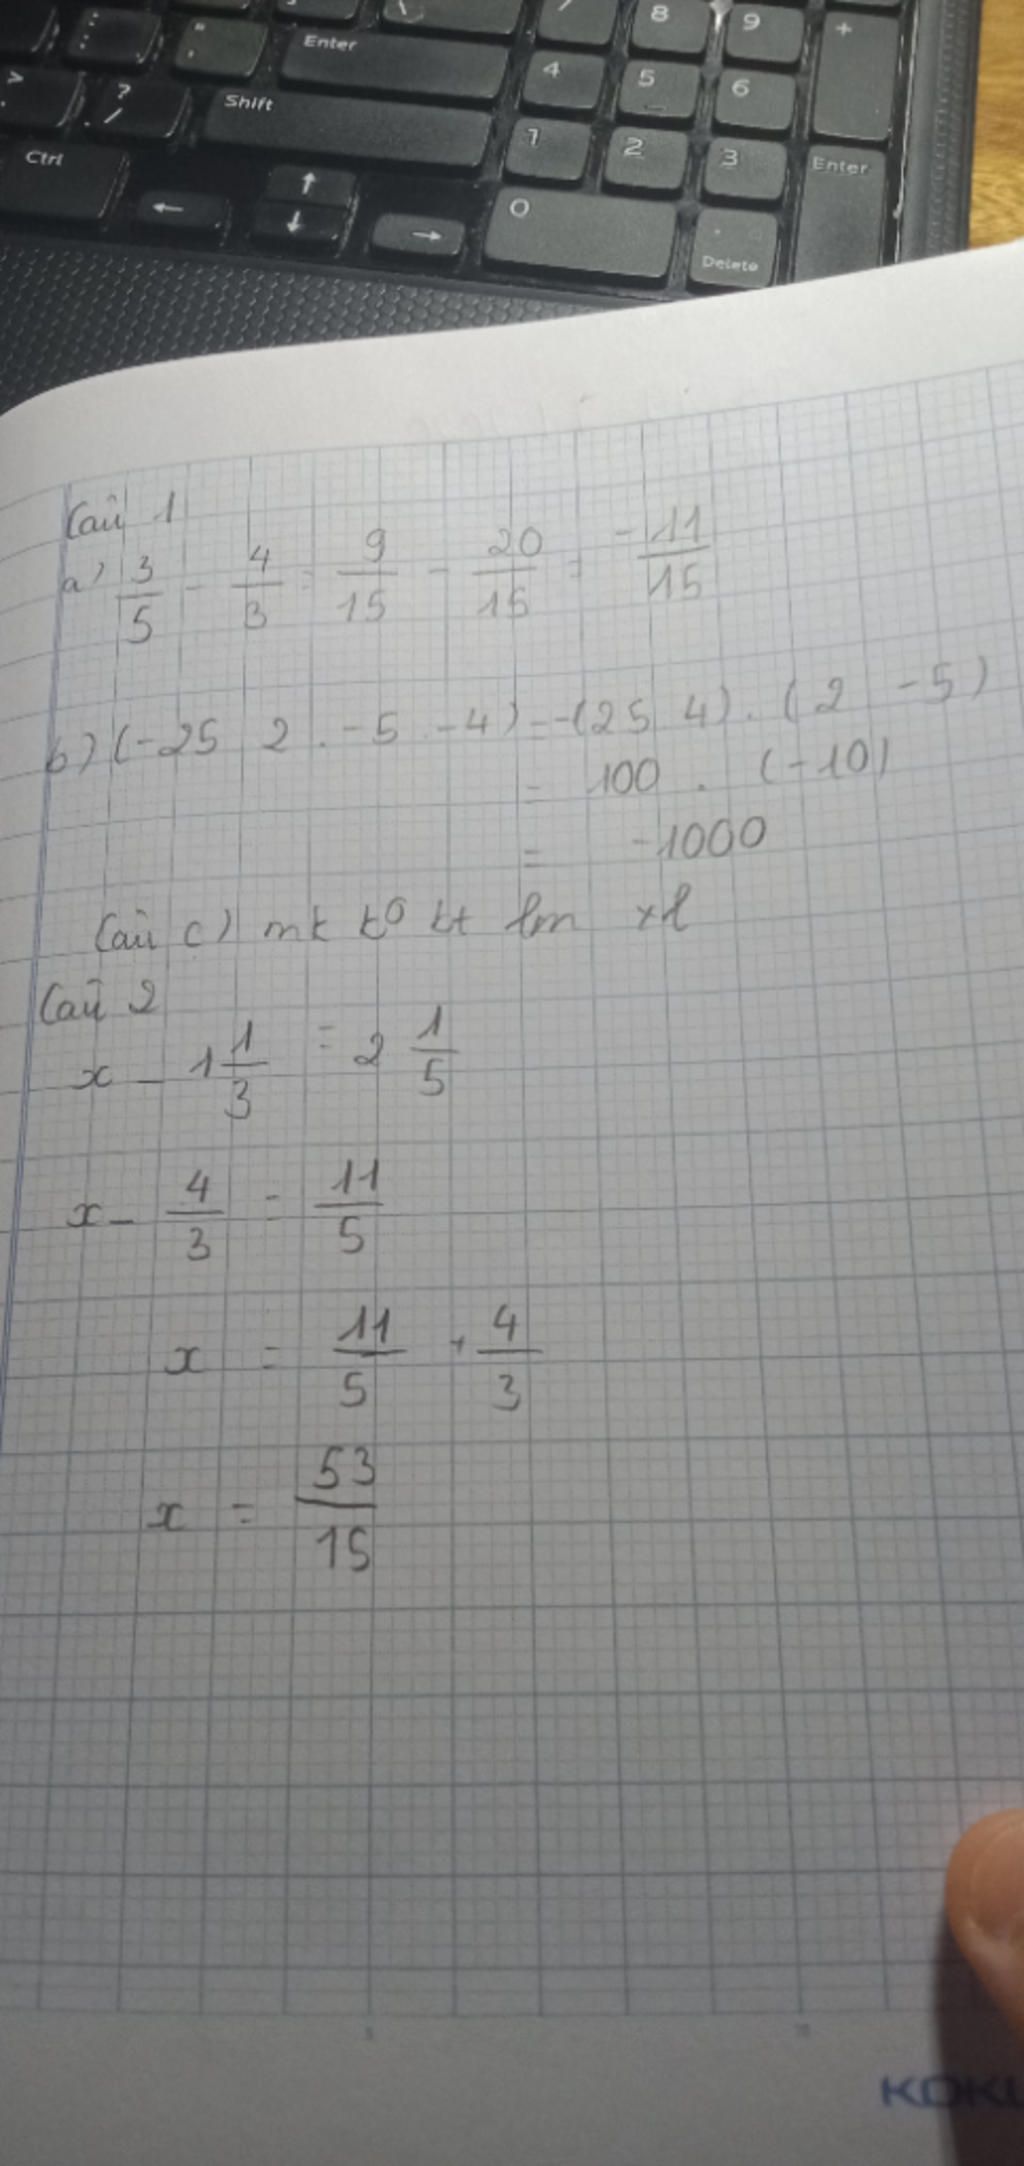 8 9 +
Enter 4 5 6
> ? / Shift 1 2 3 Enter
Ctrl ↑ 0
← ↓ → . Delete
Câu 1
a) 3/5 - 4/3 = 9/15 - 20/15 = -11/15
b) (-25 2 . -5 -4) = -(25 4) . (2 -5)
= 100 . (-10)
= -1000
Câu c) mk ko tt lm xl
Câu 2
x - 1 1/3 = 2 1/5
x - 4/3 = 11/5
x = 11/5 + 4/3
x = 53/15